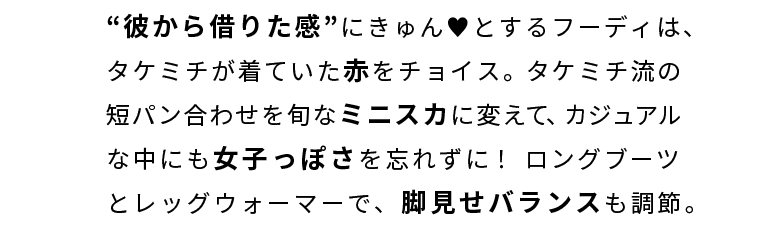 “彼から借りた感”にきゅん♥とするフーディは、
タケミチが着ていた赤をチョイス。タケミチ流の
短パン合わせを旬なミニスカに変えて、カジュアル
な中にも女子っぽさを忘れずに！ ロングブーツ
とレッグウォーマーで、脚見せバランスも調節。